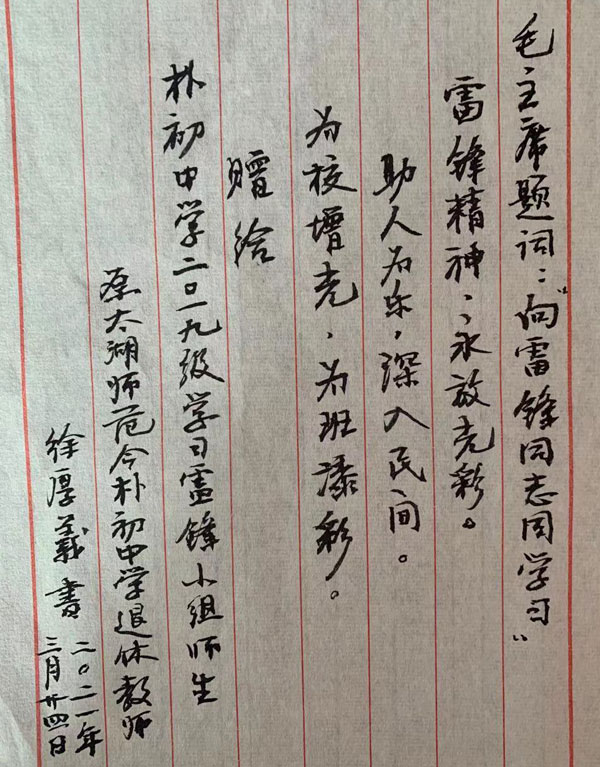 毛主席题词：“向雷锋同志同学习”
雷锋精神，永放光彩。
助人为乐，深入民间。
为校增光，为班添彩。
赠给
朴初中学二〇一九级学习雷锋小组师生
原太湖师范今朴初中学退休教师
徐厚义书
二〇二一年
三月廿四日